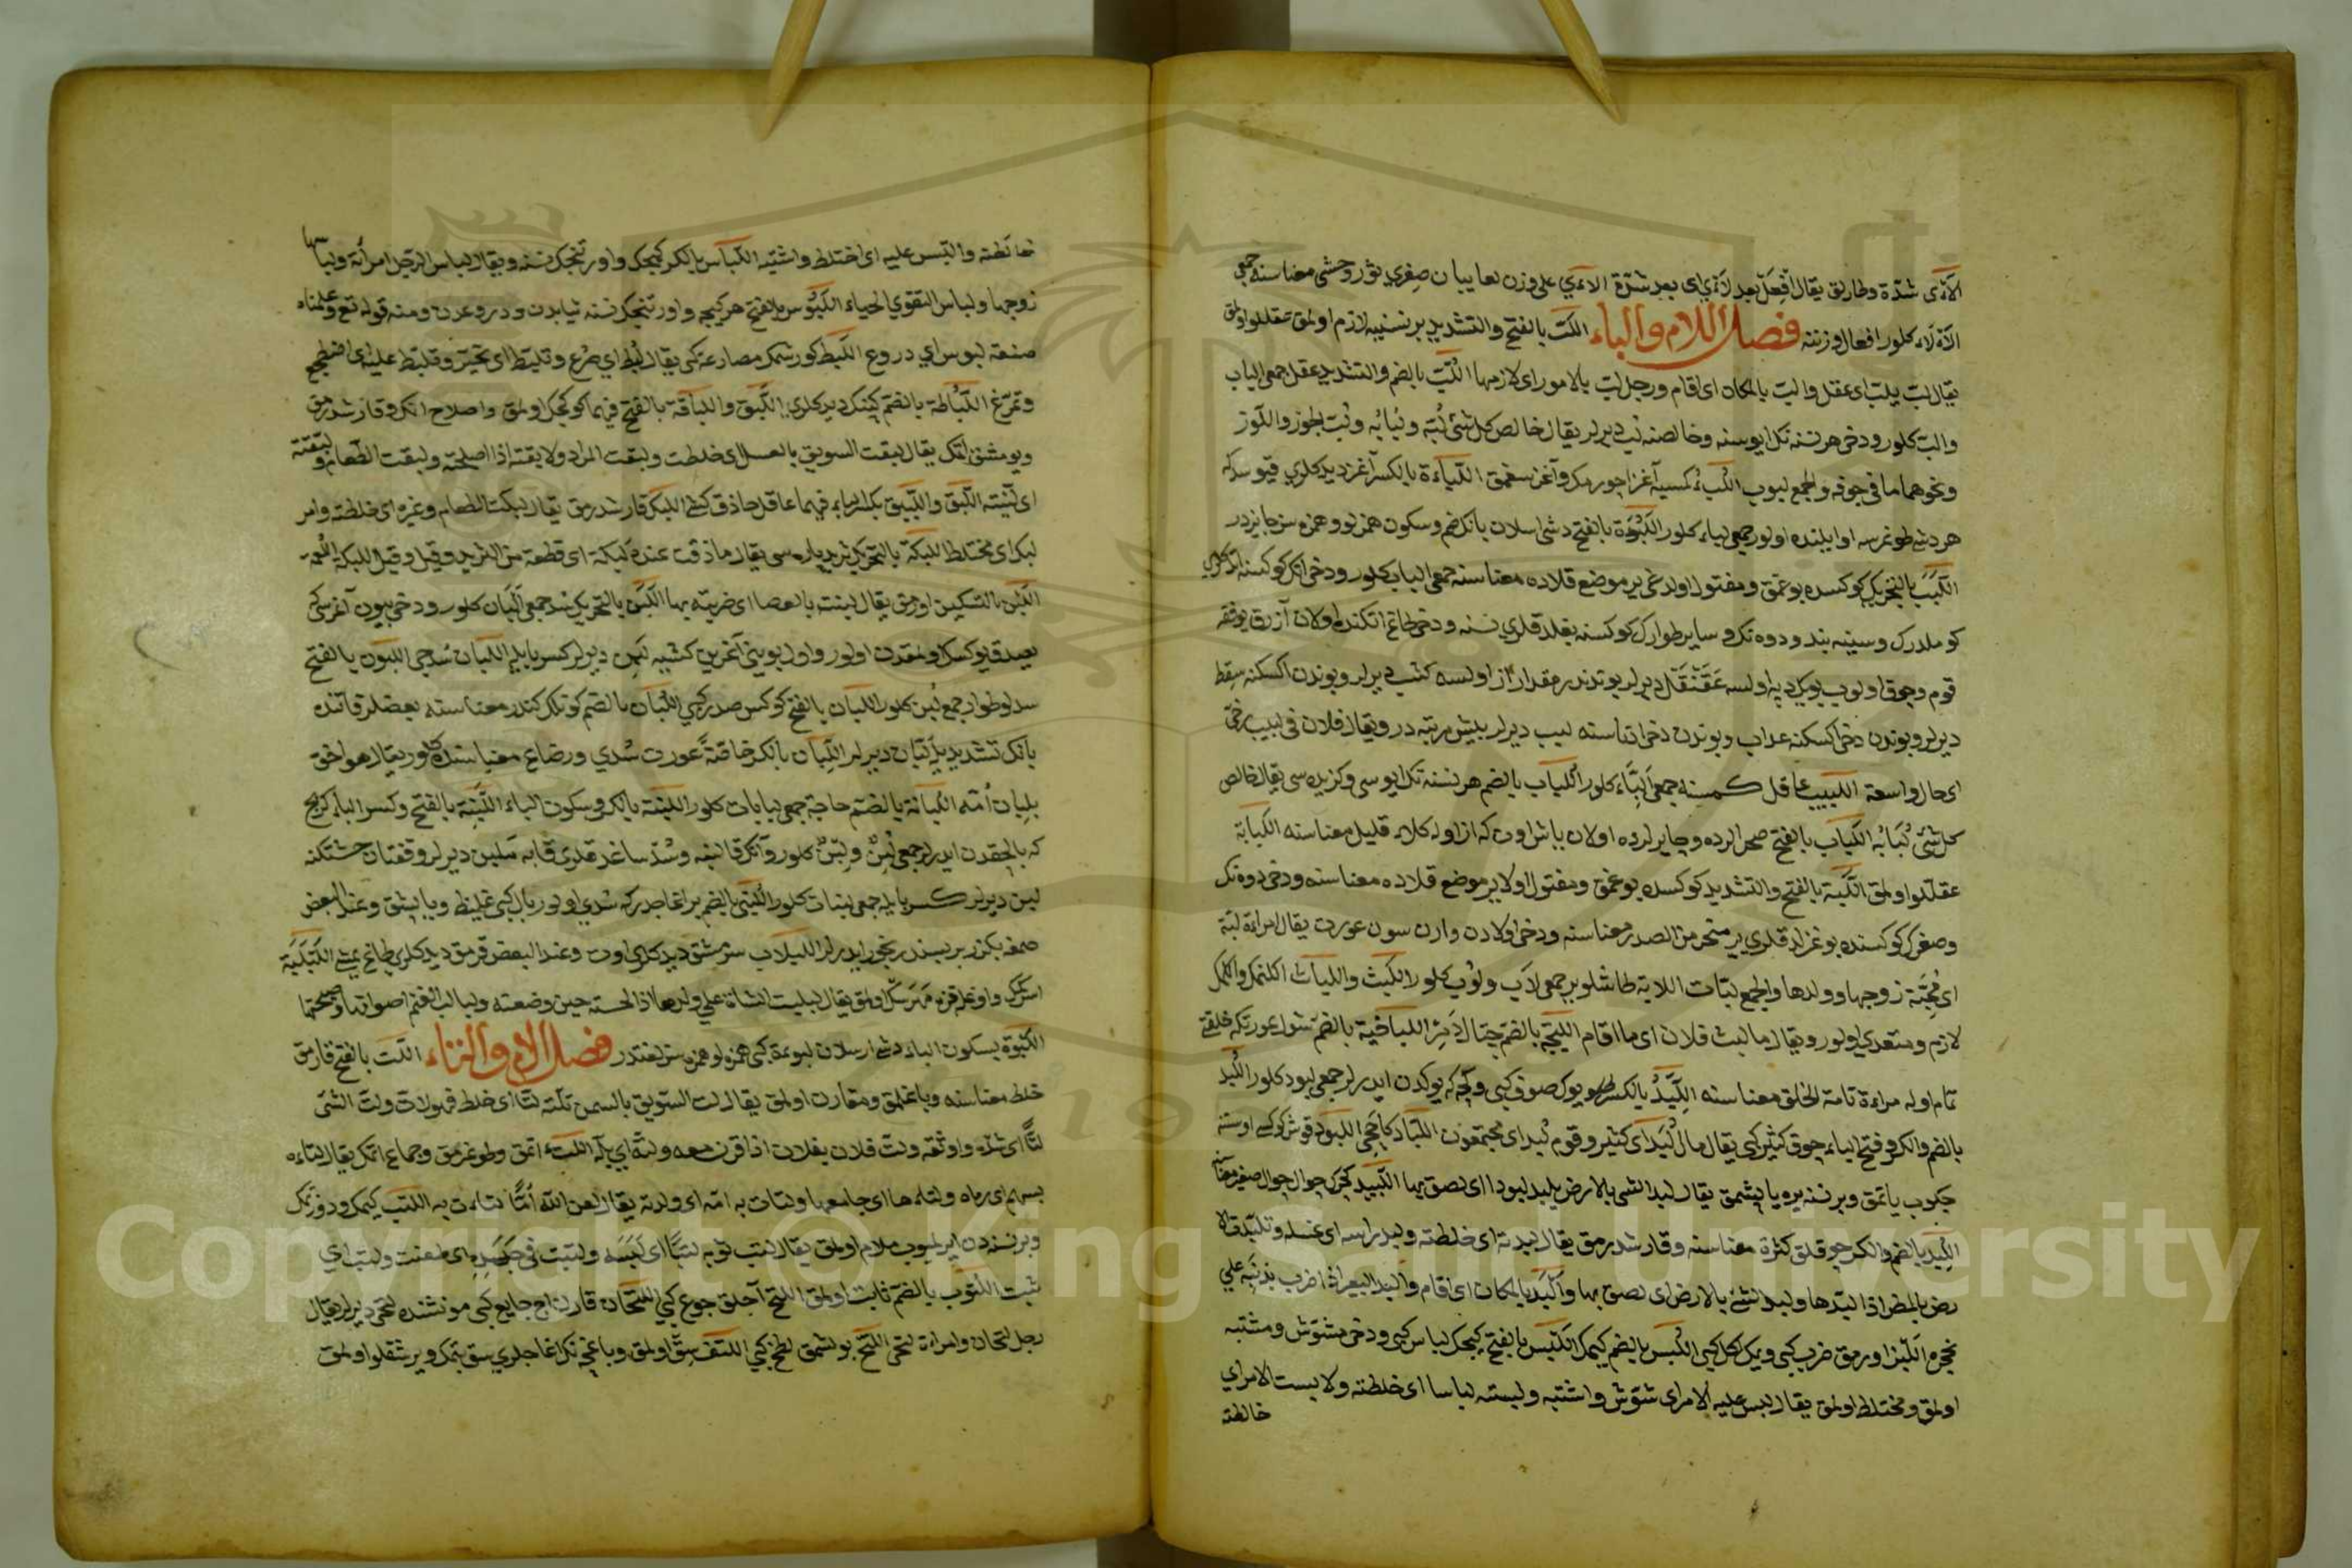 اللأى شدة وطارلق يقال افعل بعد لأي اى بعد شدة اللأى على وزن لعا يبان صغرى ثور وحشى معناسنه جمعى
الآلاء كلور افعال وزننه فصل اللام والباء اللب بالفتح والتشديد بر نسنيه لازم اولمق عقللو اولمق
يقال لب يلب اى عقل والب بالمكان اى اقام ورجل لب بالامور اى لازمها اللب بالضم والتشديد عقل جمعى الباب
والب كلور ودخى هر نسنه نك ايوسنه وخالصنه لب ديرلر يقال خالص كل شئ لبه ولبابه ولب الجوز واللوز
ونحوهما ما فى جوفه والجمع لبوب اللبء كمسيه آغز اجورمك وآغز سغمق اللباءة بالكسر آغز ديدكلرى
هر دشى طوغرسه اوايلنده اولور جمعى لباء كلور اللبوءة بالفتح دشى اسلان بانك ضم وسكون همزلو وهمزه سز جايزدر
اللبب بالتحريك كوكسده بوغمق ومفتول اولدغى ير موضع قلاده معناسنه جمعى الباب كلور ودخى
كوملدرك وسينه بند ودوه نك وساير طوارك كوكسنه بغلدقلرى نسنه ودخى طاغ اتكنده اولان آزرق يوفقه
قوم وجوق اولوب بيوك ديه اولسه عقنقل ديرلر بوندندر مقدار آز اولسه كثيب ديرلر وبوندن اكسكنه سقط
ديرلر وبوندن دخى اكسكنه عداب وبوندن دخى ادناسنه لبب ديرلر بيش مرتبه در ويقال فلان فى لبب رخى
اى حال واسعة اللبيب عاقل كمسنه جمعى الباء كلور اللباب بالضم هر نسنه نك ايوسى وكزيده سى يقال خالص
كل شئ لبابه اللباب بالفتح صحرالرده وجايرلرده اولان ياش اوت كه از اوله كلاء قليل معناسنه اللبابة
عقللو اولمق اللبة بالفتح والتشديد كوكسده بوغمق ومفتول اولا ير موضع قلاده معناسنه ودخى دوه نك
وصغرك كوكسنده بوغزلدقلرى ير منحر من الصدر معناسنه ودخى اولادن وارن سون عورت يقال امراءة لبة
اى محبة زوجها وولدها والجمع لبات اللابة طاشلو ير جمعى لاب ولوب كلور اللبث واللباث اكلنمك
لازم ومتعدى اولور ويقال ما لبث فلان اى ما اقام اللبجة بالضم اللباخية بالضم شول عورتكه خلقتى
تمام اوله مراءة تامة الخلق معناسنه اللبد بالكسر يوك صوف كبى وكچه كه يوكدن ايدرلر جمعى لبود كلور اللبد
بالضم والكسر وفتح الباء چوق كثير كبى يقال مال لبد اى كثير وقوم لبد اى مجتمعون اللباد كچه جى اللبود
چكوب ياتمق وبر نسنه يره يا پشمق يقال لبد الشى بالارض يلبد لبودا اى لصق بها اللبيد كچك جوال جوال صغير
اللبد بالضم والكسر چوقلق كثرة معناسنه وقارشدرمق يقال لبدته اى خلطته ولبد راسه اى غسله وتلبد
رض بالمطر اذا لبدها ولبد الشئ بالارض اى لصق بها والبد بالمكان اى اقام والبد البعير اذا ضرب بذنبه على
عجزه اللبز اورمق ضرب كبى ويمك اكل كبى اللبس بالضم كيمك اللبس بالفتح كيجك لباس كبى ودخى مشوش ومشتبه
اولمق ومختلط اولمق يقال لبس عليه الامر اى شوش واشتبه ولبسته لباسا اى خلطته ولابست الامر اى
خالطته
خالطته والتبس عليه اى اختلط واشتبه اللباس بالكسر كيجك واورتنجك نسنه ويقال لباس الرجل امرأته ولباسها
زوجها ولباس التقوى الحياء اللبوس بالفتح هر كيجه واورتنجك نسنه ثيابدن ودروعدن ومنه قوله تع وعلمناه
صنعة لبوس اى دروع اللبط كورشمك مصارعة كبى يقال لبط اى صرع وتلبط اى تحير وتلبط عليه اى اضطجع
وتمرغ اللباطة بالضم كپنك ديدكلرى اللبق واللباقة بالفتح فيهما كوكچك اولمق واصلاح اتمك وقارشدرمق
ويومشق اتمك يقال لبقت السويق بالعسل اى خلطت ولبقت المراد ولابقته اذا اصلحته ولبقت الطعام ولبقته
اى لينته اللبق واللبيق بكسر الباء فيهما عاقل حاذق كشى اللبك قارشدرمق يقال لبكت الطعام وغيره اى خلطته وامر
لبك اى مختلط اللبكة بالتحريك ثريد پاره سى يقال ما ذقت عنده لبكة اى قطعة من الثريد وقيل اللبكة اللقمة
اللبن بالتسكين اورمق يقال لبنته بالعصا اى ضربته بها اللبن بالتحريك سد جمعى البان كلور ودخى بيون آغرسى كى
يصدق يوكسك اولمقدن اولور واول بوينى آغرين كشيه لبن ديرلر كسر بايله اللبان سدجى اللبون بالفتح
سدلو طوار جمعى لبن كلور اللبان بالفتح كوكس صدر كبى اللبان بالضم كونلك كندر معناسنه بعضلر قاتنده
بانك تشديديله لبان ديرلر اللبان بالكسر خاصة عورت سدى ورضاع معناسنده كلور يقال هو اخوه
بلبان امه اللبانة بالضم حاجة جمعى لبانات كلور اللبنة بالكسر وسكون الباء اللبنة بالفتح وكسر الباء كرپج
كه بالچقدن ايدرلر جمعى لبن ولبن كلور
لبن ديرلر كسر بايله جمعى لبنات كلور اللبنى بالضم بر اغاجدركه سدى اولور بال كبى غليظ ويا پشق وعند البعض
صمغه بكزر بر نسنه در بخور ايدرلر اللبلاب سرمشق ديدكلرى اوت وعند البعض قرمق ديدكلرى اللبلبة
اسركمك واوغلنقزه اولمق يقال لبلبت الشاة على ولدها اذا لحسته حين وضعته ولبالب الغنم اصواتها
اللبوة بسكون الباء دشى ارسلان لبوءة كبى همزلو همزه سز لغتدر فصل اللام والتاء اللت بالفتح قارمق
خلط معناسنه وباغلمق ومقارن اولمق يقال لت السويق بالسمن تلته لتا اى خلط ولت الشئ
لتا اى شده واوثقه ولت فلان بفلان اذا قرن معه ولته اى بله اللتء اتمق وطوغرمق وجماع اتمك يقال لتاءه
بسهم اى رماه ولتاءها اى جامعها ولتات به امه اى ولدته يقال لعن الله اما لتاءت به اللتب كيمك ودوزتمك
وبر نسنه دن ايرلميوب ملازم اولمق يقال لتب ثوبه لتبا اى لبسه ولتبت فى اى طعنت ولتب اى
ثبت اللتوب بالضم ثابت اولمق اللتح آجلق جوع كبى اللتحان قارنى اچ جايع كبى مونثنده لتحى ديرلر يقال
رجل لتحان وامراءة لتحى اللتخ بولشمق لطخ كبى